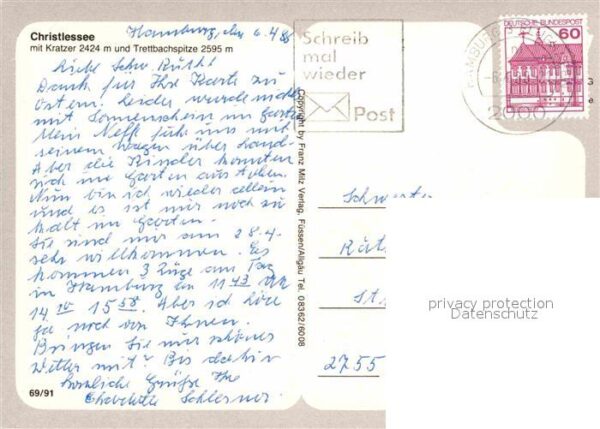 Christlessee
mit Kratzer 2424 m und Trettbachspitze 2595 m
Hamburg, den 6.4.86
Dank für Ihre Karte zu
Ostern. Leider wurde nichts
mit Sonnenschein im Garten
Mein Neffe fuhr uns mit
seinem Wagen über Land.
Aber die Kinder konnten
sich im Garten aus toben.
Nun bin ich wieder allein
und es ist mir noch zu
kalt im Garten.
Sie sind mir am 28.4.
sehr willkommen. Es
kommen 3 Züge am Tag
in Hamburg an 11 43
14 10 15 58. Aber ich höre
ja noch von Ihnen.
Bringen Sie nur schönes
Wetter mit! Bis dahin
herzliche Grüße Ihre
69/91
Copyright by Franz Milz Verlag, Füssen/Allgäu Tel. 08362/6008
Schreib
mal
wieder
Post
DEUTSCHE BUNDESPOST
60
HAMBURG
2000
Schwester
2755
privacy protection
Datenschutz